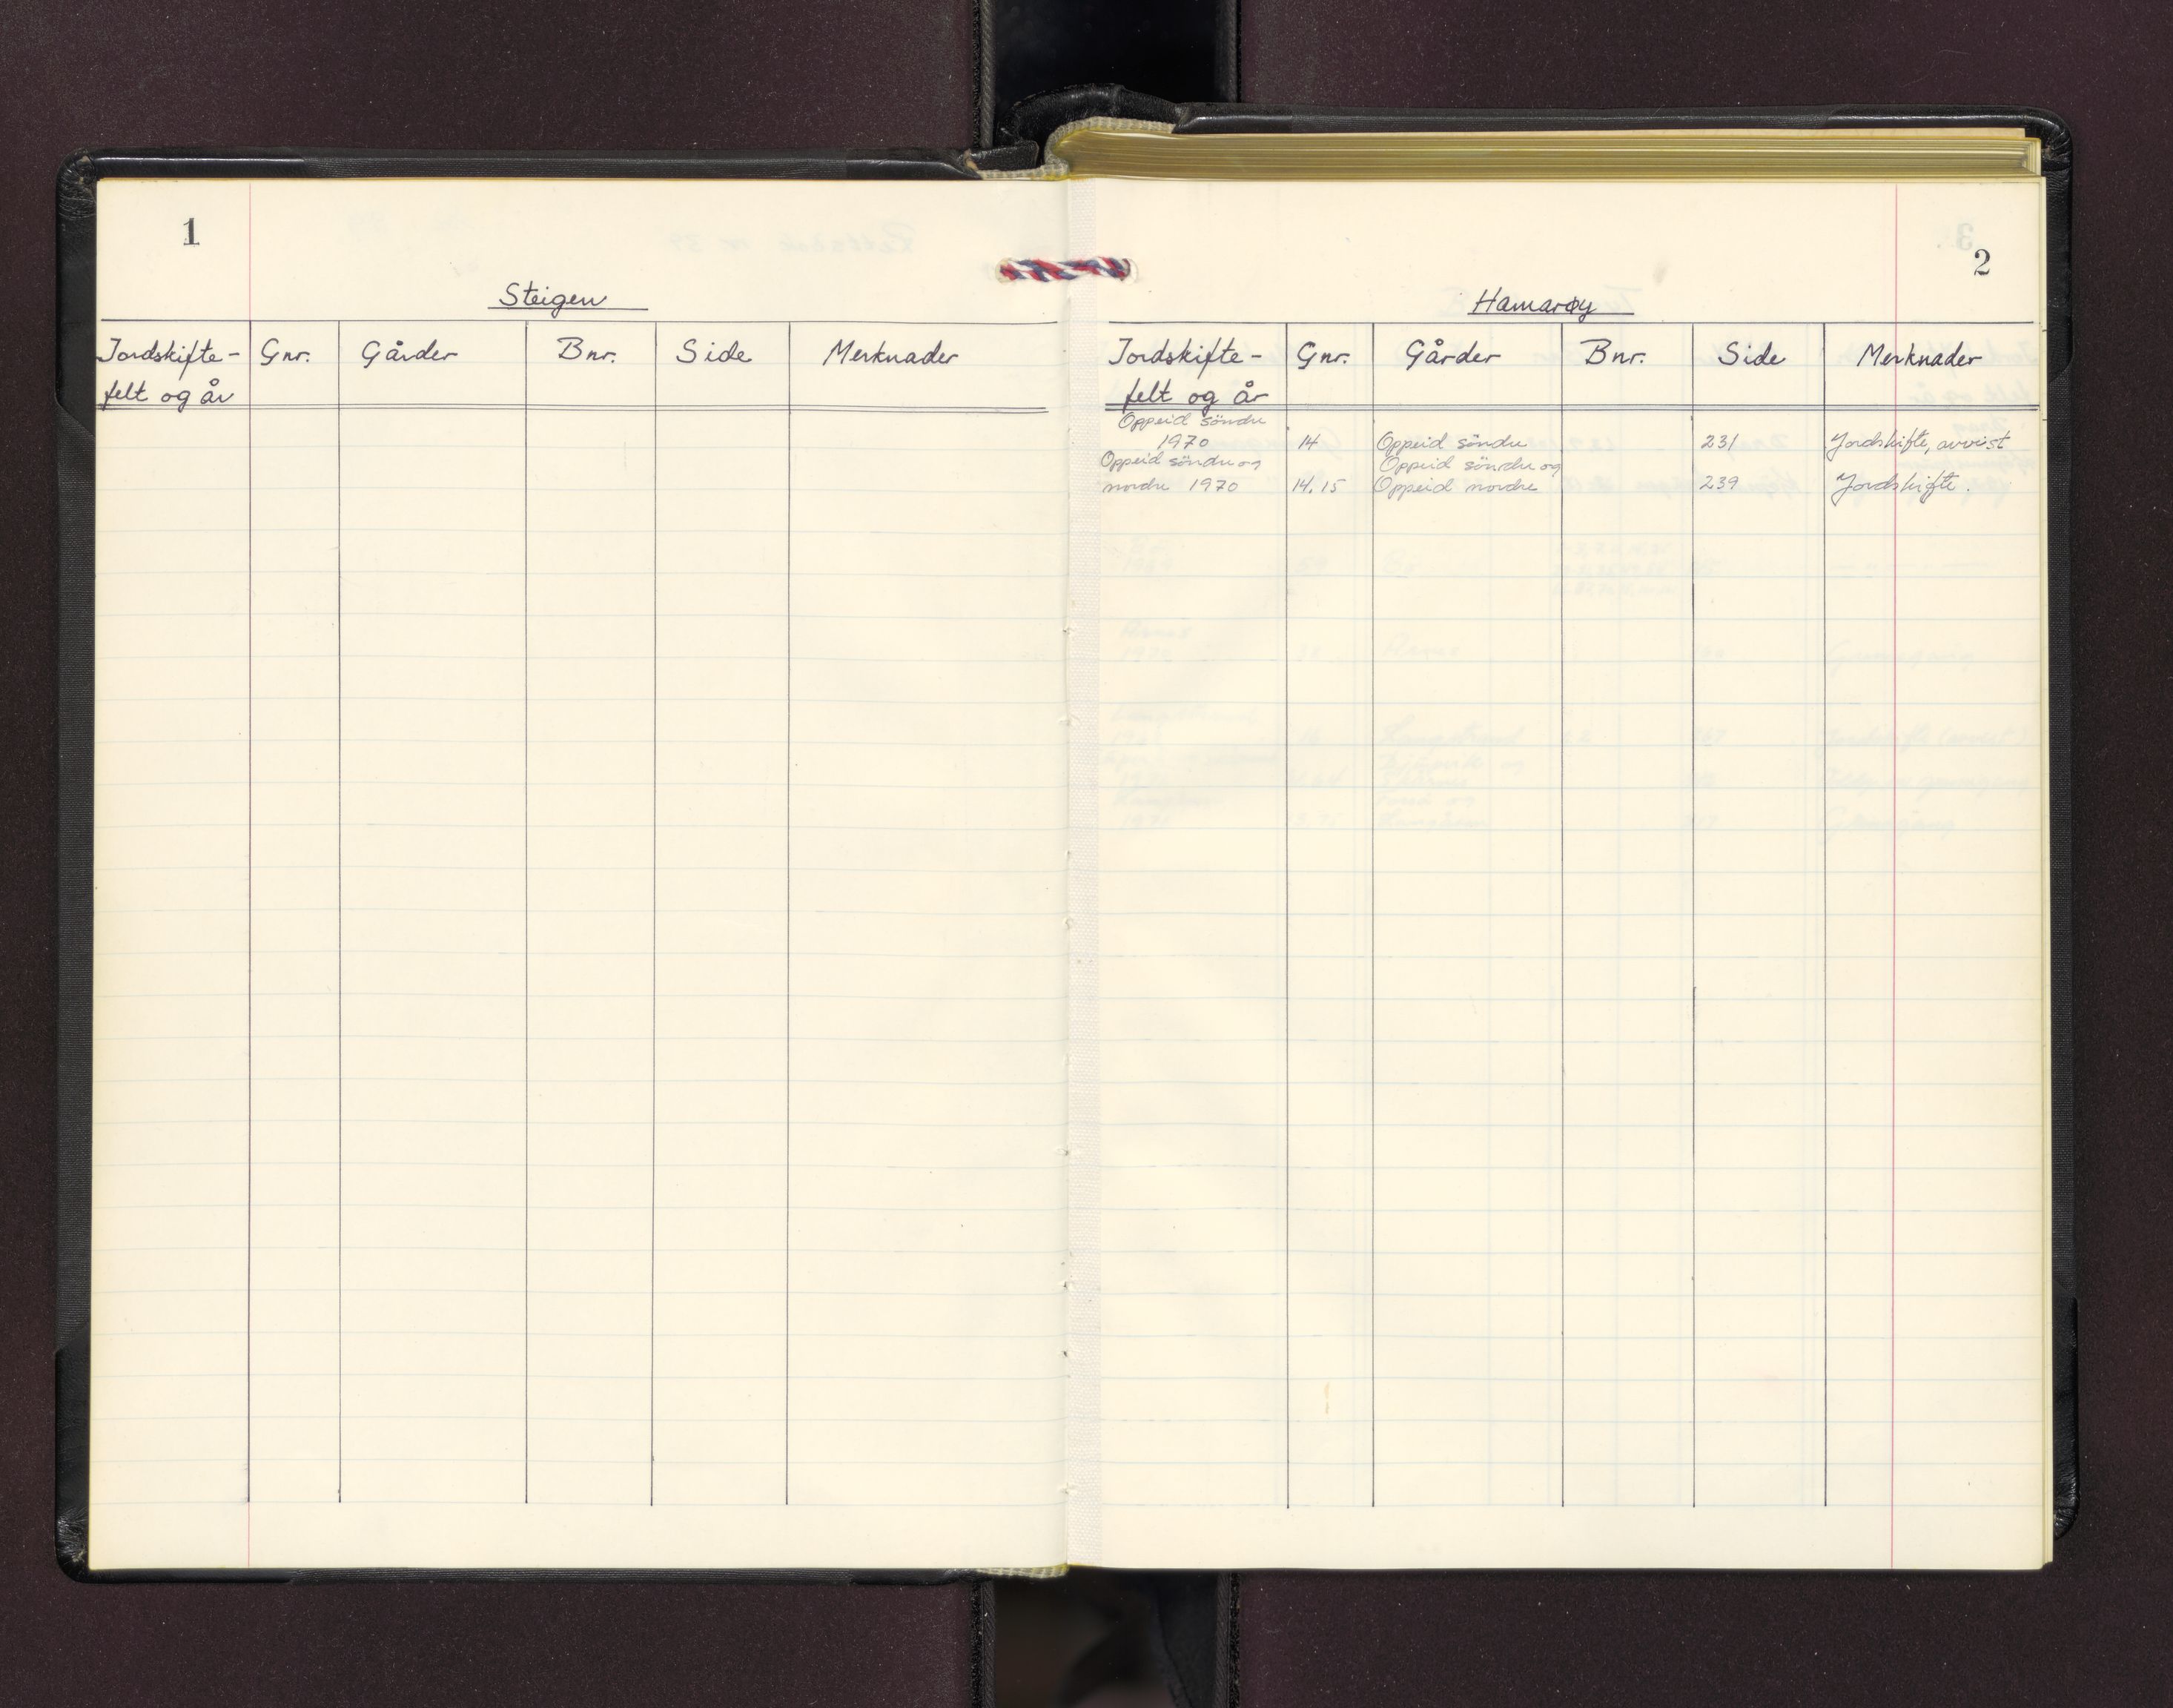 1
Steigen
Jordskifte- Gnr. Gårder Bnr. Side Merknader
felt og år
2
Hamarøy
Jordskifte- Gnr. Gårder Bnr. Side Merknader
felt og år
Oppeid söndre
1970 14 Oppeid söndre 231 Jordskifte, avvist
Oppeid söndre og Oppeid söndre og
nordre 1970 14.15 Oppeid nordre 239 Jordskifte.